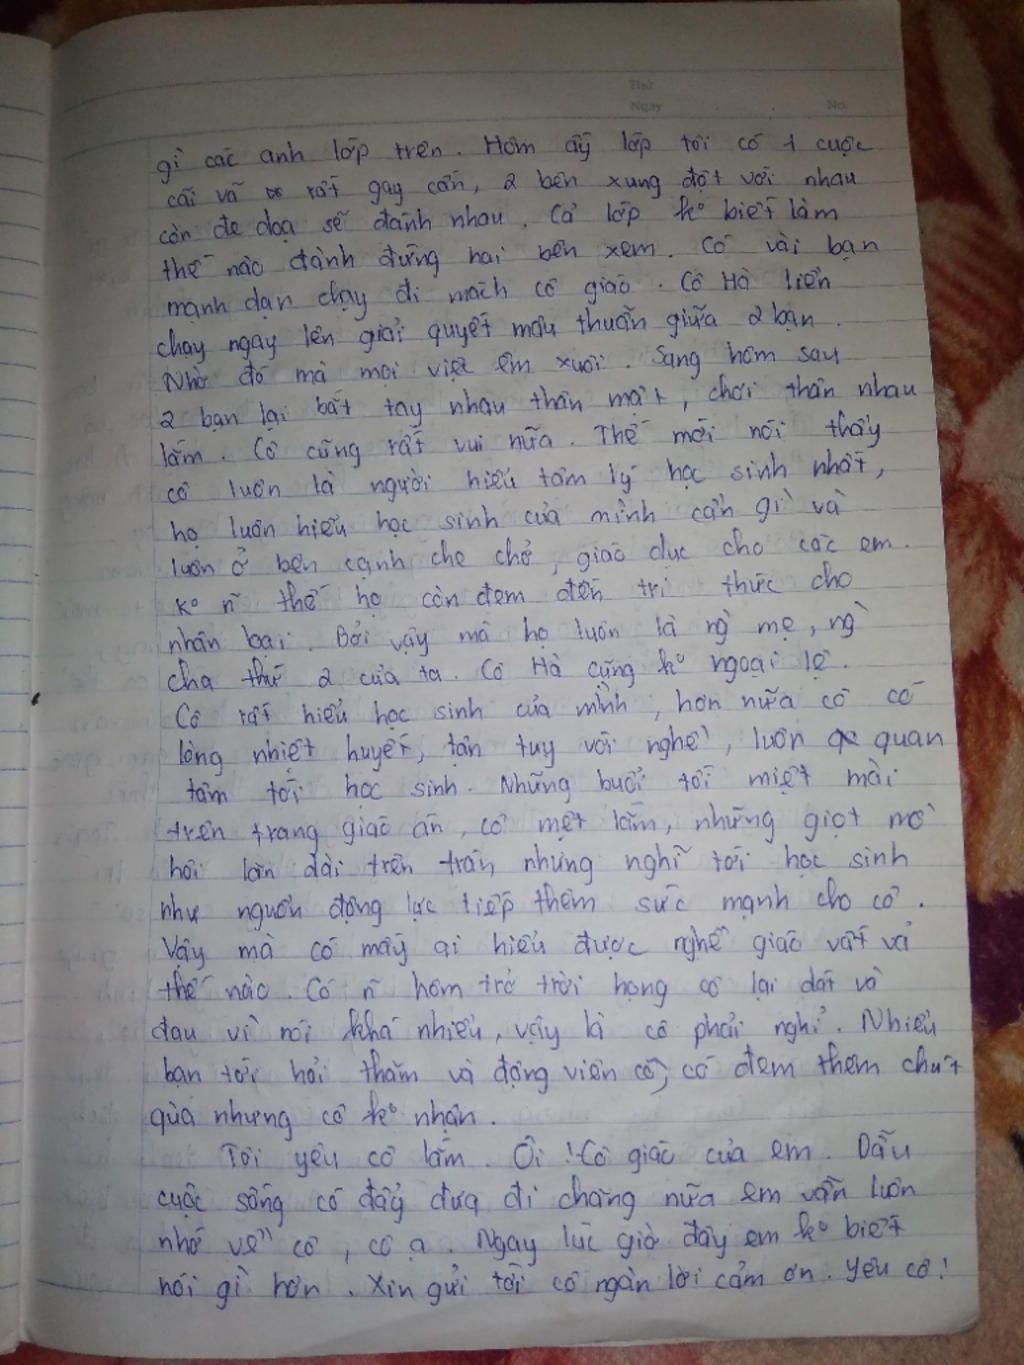 Thứ
Ngày No.
gì các anh lớp trên. Hôm ấy lớp tôi có 1 cuộc
cãi vã rất gay cấn, 2 bên xung đột với nhau
còn đe dọa sẽ đánh nhau. Cả lớp ko biết làm
thế nào đành đứng hai bên xem. Có vài bạn
mạnh dạn chạy đi mách cô giáo. Cô Hà liền
chạy ngay lên giải quyết mâu thuẫn giữa 2 bạn.
Nhờ đó mà mọi việc êm xuôi. Sang hôm sau
2 bạn lại bắt tay nhau thân mật, chơi thân nhau
lắm. Cô cũng rất vui nữa. Thế mới nói thầy
cô luôn là người hiểu tâm lý học sinh nhất,
họ luôn hiểu học sinh của mình cần gì và
luôn ở bên cạnh che chở, giáo dục cho các em.
Ko n~ thế họ còn đem đến tri thức cho
nhân loại. Bởi vậy mà họ luôn là ng` mẹ, ng`
cha thứ 2 của ta. Cô Hà cũng ko ngoại lệ.
Cô rất hiểu học sinh của mình, hơn nữa cô có
lòng nhiệt huyết, tận tuỵ với nghề, luôn quan
tâm tới học sinh. Những buổi tối miệt mài
trên trang giáo án, cô mệt lắm, những giọt mồ
hôi lăn dài trên trán nhưng nghĩ tới học sinh
như nguồn động lực tiếp thêm sức mạnh cho cô.
Vậy mà có mấy ai hiểu được nghề giáo vất vả
thế nào. Có n~ hôm trở trời họng cô lại dát và
đau vì nói khá nhiều, vậy là cô phải nghỉ. Nhiều
bạn tới hỏi thăm và động viên cô, có đem thêm chút
quà nhưng cô ko nhận.
Tôi yêu cô lắm. Ôi! Cô giáo của em. Dẫu
cuộc sống có đẩy đưa đi chăng nữa em vẫn luôn
nhớ về cô, cô ạ. Ngay lúc giờ đây em ko biết
nói gì hơn. Xin gửi tới cô ngàn lời cảm ơn. Yêu cô!